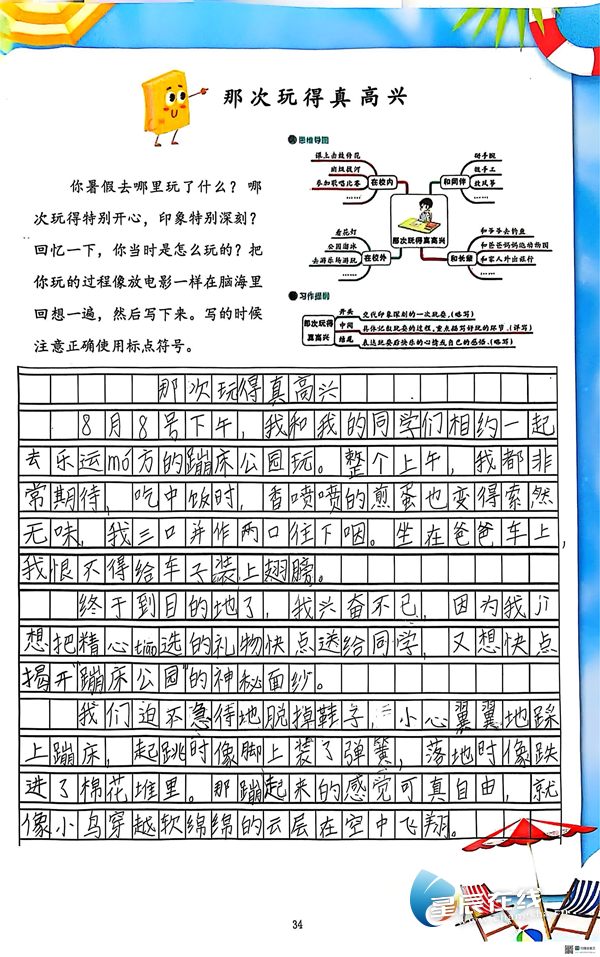 那次玩得真高兴
思维导图
课上击鼓传花
班级拔河
参加歌唱比赛
……
在校内
掰手腕
做手工
放风筝
……
和同伴
那次玩得真高兴
看花灯
公园游泳
去游乐场游玩
……
在校外
和爷爷去钓鱼
和爸爸妈妈逛动物园
和家人外出旅行
……
和长辈
你暑假去哪里玩了什么？哪
次玩得特别开心，印象特别深刻？
回忆一下，你当时是怎么玩的？把
你玩的过程像放电影一样在脑海里
回想一遍，然后写下来。写的时候
注意正确使用标点符号。
习作提纲
那次玩得真高兴
开头 交代印象深刻的一次玩耍。(略写)
中间 具体记叙玩耍的过程，重点描写好玩的环节。(详写)
结尾 表达玩耍后快乐的心情或自己的感悟。(略写)
那次玩得真高兴
8月8号下午，我和我的同学们相约一起
去乐运mó方的蹦床公园玩。整个上午，我都非
常期待，吃中饭时，香喷喷的煎蛋也变得索然
无味，我三口并作两口往下咽。坐在爸爸车上，
我恨不得给车子装上翅膀。
终于到目的地了，我兴奋不已，因为我
想把精心tiāo选的礼物快点送给同学，又想快点
揭开"蹦床公园"的神秘面纱。
我们迫不急待地脱掉鞋子，小心翼翼地踩
上蹦床，起跳时像脚上装了弹簧，落地时像跌
进了棉花堆里。那蹦起来的感觉可真自由，就
像小鸟穿越软绵绵的云层在空中飞翔。
34
星辰在线